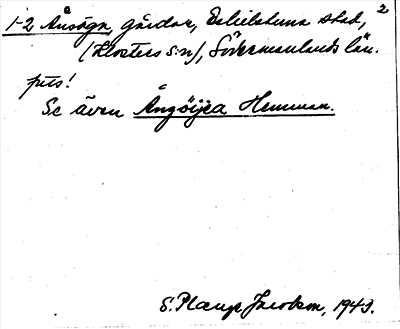 2
1-2 Åusögn, gårdar, Eskilstuna stad,
(Klosters s:n), Södermanlands län.
prés!
Se även Ångöijea Hemman.
S. Plaup Jacobson, 1943.